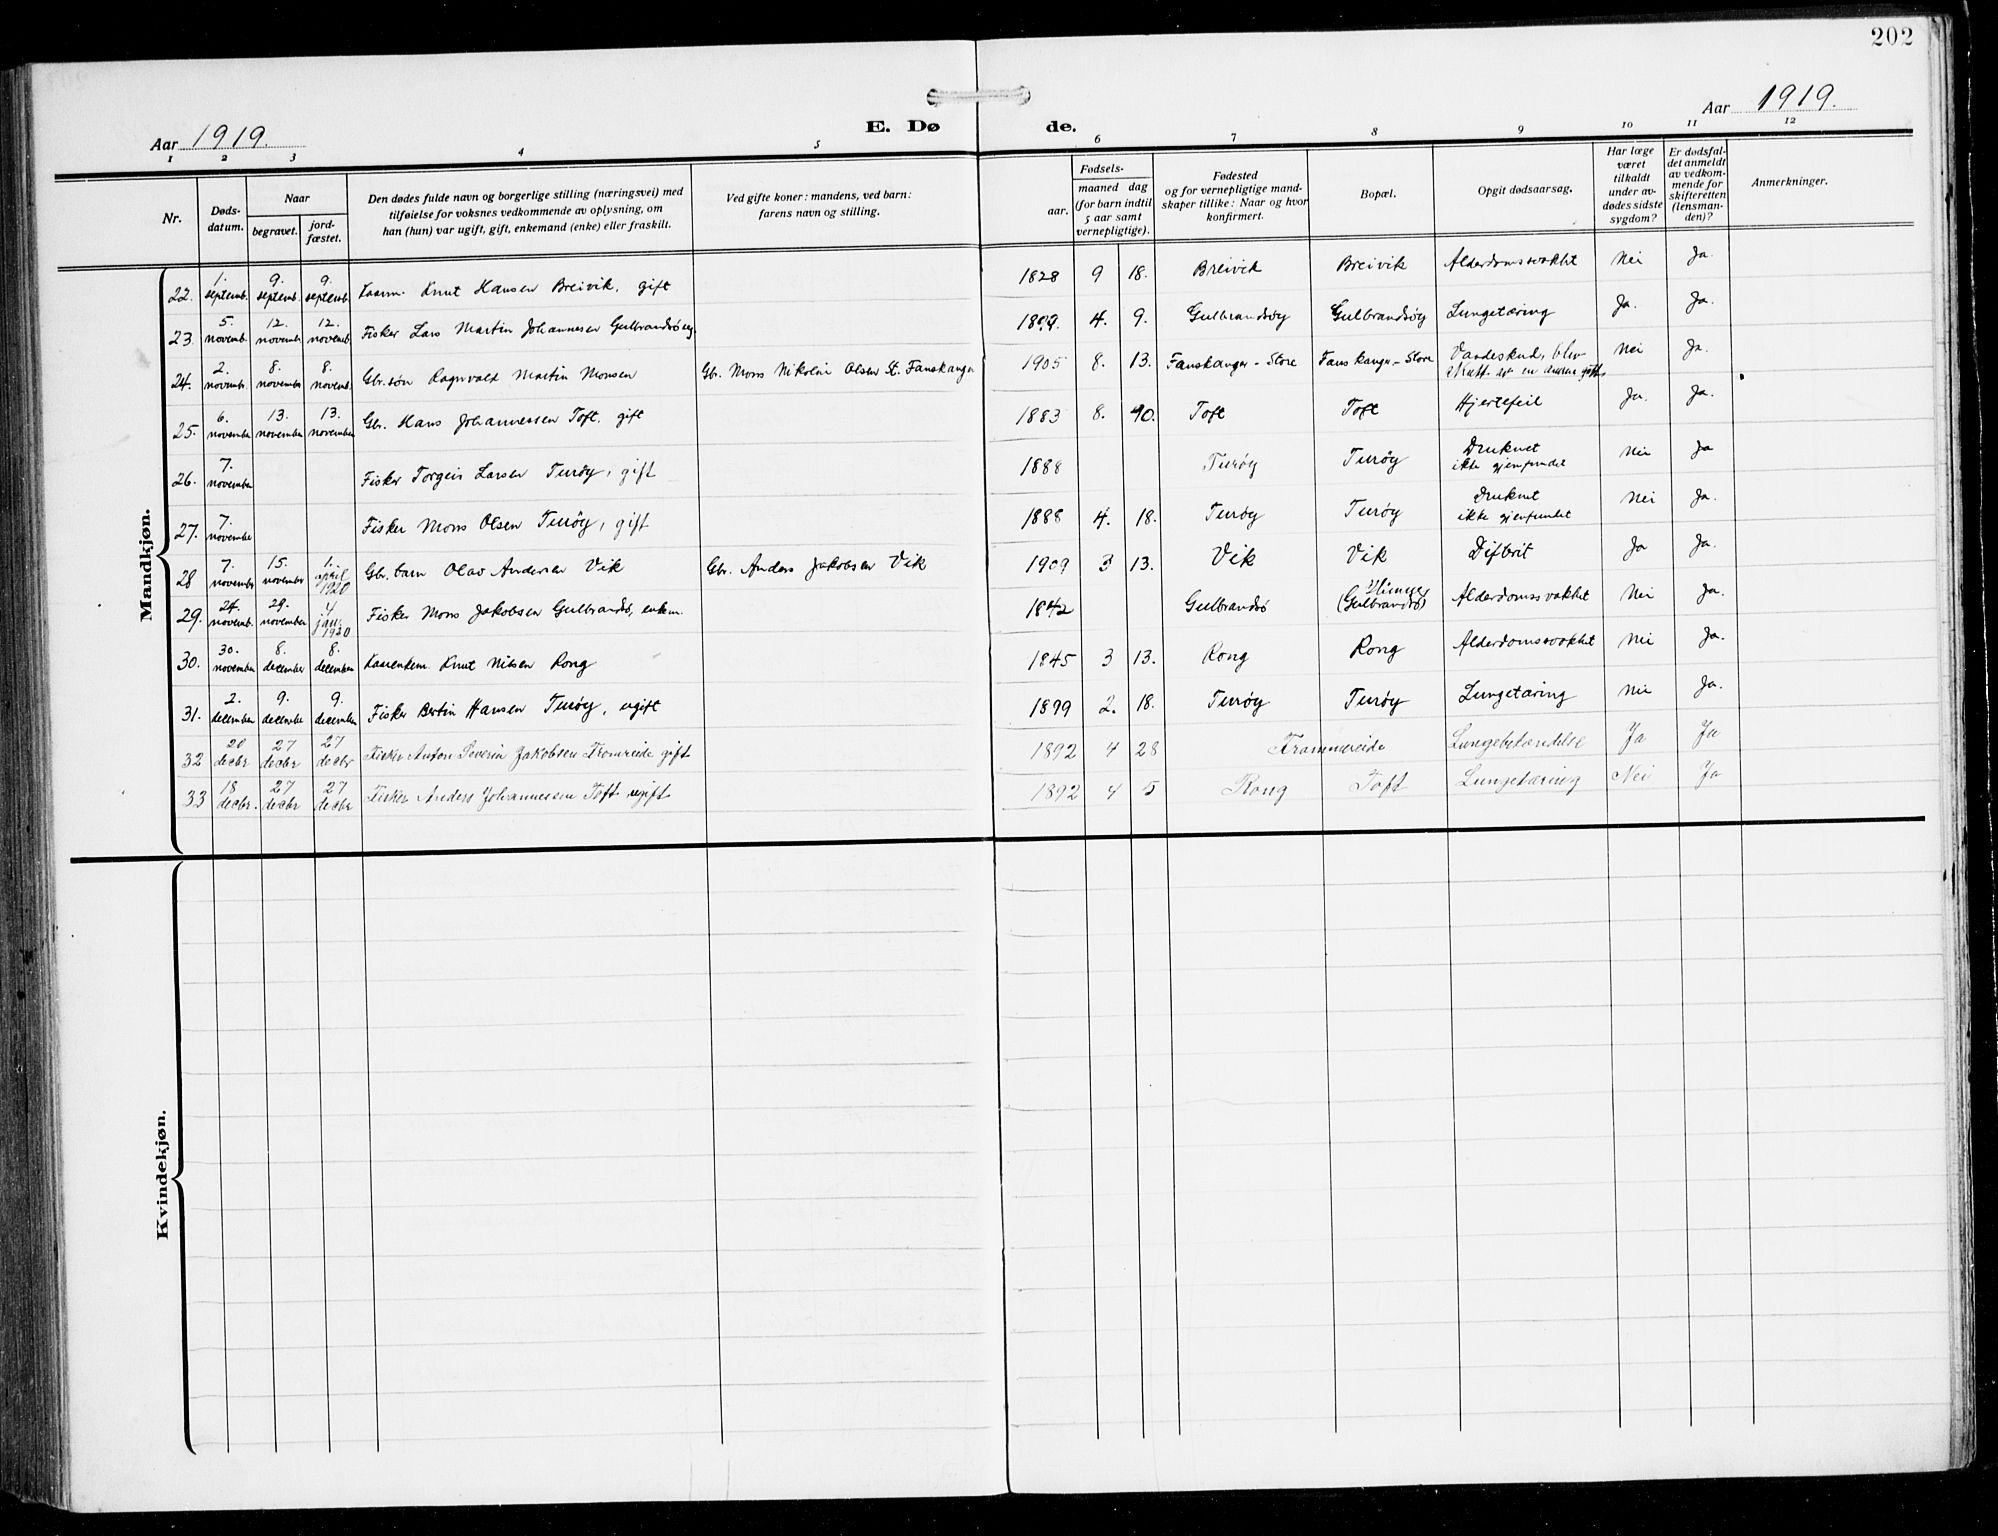 202
Aar 1919.
E. Dø de.
Aar 1919.
1 2 3 4 5 6 7 8 9 10 11 12
Nr.
Døds-
datum.
Naar
begravet.
jord-
fæstet.
Den dødes fulde navn og borgerlige stilling (næringsvei) med
tilføielse for voksnes vedkommende av oplysning, om
han (hun) var ugift, gift, enkemand (enke) eller fraskilt.
Ved gifte koner: mandens, ved barn:
farens navn og stilling.
Fødsels-
aar.
maaned dag
(for barn indtil
5 aar samt
vernepligtige).
Fødested
og for vernepligtige mand-
skaper tillike: Naar og hvor
konfirmert.
Bopæl.
Opgit dødsaarsag.
Har læge
været
tilkaldt
under av-
dødes sidste
sygdom?
Er dødsfal-
det anmeldt
av vedkom-
mende for
skifteretten
(lensman-
den)?
Anmerkninger.
Mandkjøn.
22. 1. septemb. 9. septemb. 9. septemb. Kaarm. Knut Hansen Breivik, gift 1828 9 18. Breivik Breivik Alderdomssvakhet Nei Ja.
23. 5. novemb. 12. novemb. 12. novemb. Fisker Lars Martin Johannesen Gulbrandsøy 4. 9. Gulbrandsøy Gulbrandsøy Lungetæring Ja. Ja.
24. 2. novemb. 8. novemb. 8. novemb. Gbr. søn Ragnvald Martin Monsen Gbr. Mons Nikolai Olsen St. Fanskanger 1905 8. 13. Fanskanger-Store Fanskanger-Store Vaadeskud, blev
skutt av en annen Nei Ja.
25. 6. november 13. november 13. november Gbr. Hans Johannessen Toft, gift 1883 8. Toft Toft Hjertefeil Ja. Ja.
26. 7. november Fisker Torgeis Larsen Turøy, gift 1888 Turøy Turøy Druknet
ikke gjenfundet Nei Ja
27. 7. november Fisker Mons Olsen Turøy, gift 1888 4. 18. Turøy Turøy Druknet
ikke gjenfundet Nei Ja.
28 7. november 15. november 1. april 1920 Gbr. barn Olav Andersen Vik Gbr. Anders Jakobsen Vik 1909 3 13. Vik Vik Difterit Ja Ja.
29. 24. novemb. 29. november 4 jan. 1920 Fisker Mons Jakobsen Gulbrandsø, enkem. 1842 Gulbrandsø (Gulbrandsø) Alderdomssvakhet Nei Ja.
30. 30. november 8. december 8. december Kaarenkem. Knut Nilsen Rong 1845 3 13. Rong Rong Alderdomssvakhet Nei Ja.
31. 2. december 9. december 9. december Fisker Bertin Hansen Turøy, ugift 1899 2. 18. Turøy Turøy Lungetæring Nei Ja.
32 20 decbr 27 decbr 27 decbr Fisker Anton Severin Jakobsen Fromreide gift 1892 4 28 Frammereide Lungebetændelse Ja Ja
33 18 decbr. 27 decbr 27 decbr Fisker Anders Johannessen Toft ugift 1892 4 5 Rong Toft Lungetæring Nei Ja
Kvindekjøn.